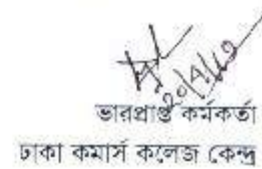 ভারপ্রাপ্ত কর্মকর্তা
ঢাকা কমার্স কলেজ কেন্দ্র